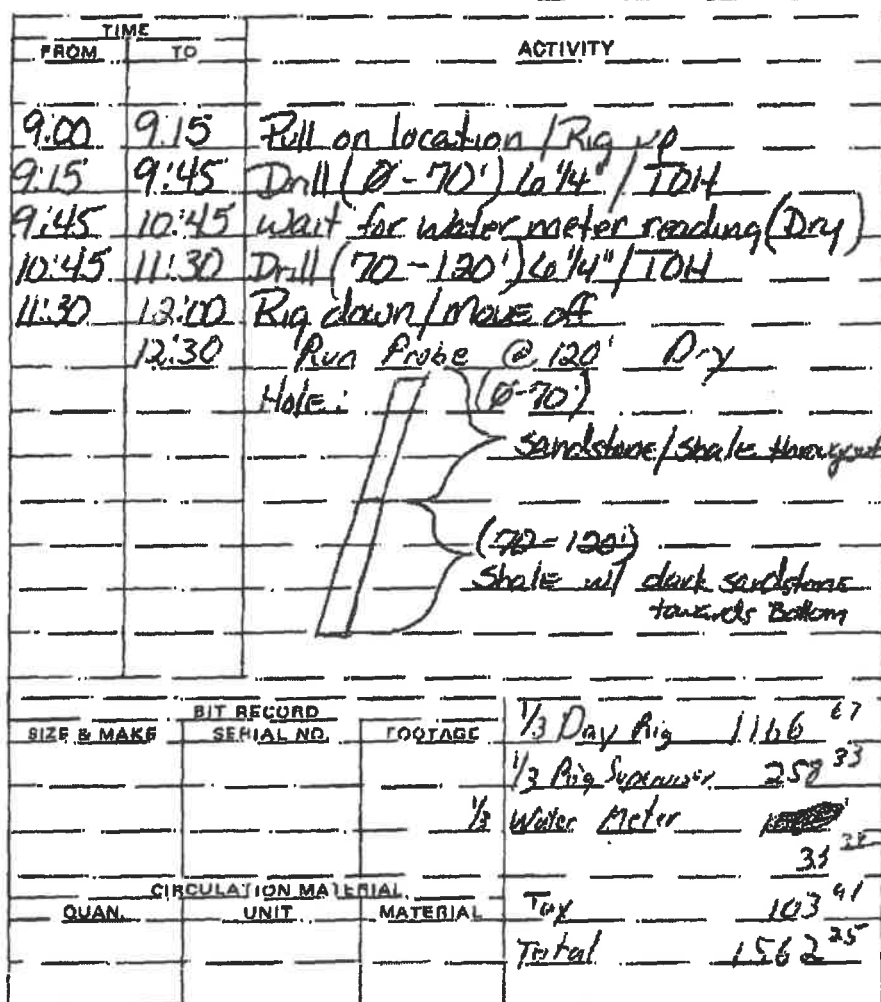 TIME
FROM TO ACTIVITY
9:00 9:15 Pull on location / Rig up
9:15 9:45 Drill (Ø-70') 6 1/4" / TOH
9:45 10:45 Wait for water meter reading (Dry)
10:45 11:30 Drill (70-120') 6 1/4" / TOH
11:30 12:00 Rig down / Move off
12:30 Run Probe @ 120' Dry
Hole: (Ø-70')
Sandstone/Shale throughout
(70-120')
Shale w/ dark sandstone
towards Bottom
BIT RECORD
SIZE & MAKE SERIAL NO. FOOTAGE
1/3 Day Rig 1166 67
1/3 Rig Supervisor 258 33
1/3 Water Meter
33 34
CIRCULATION MATERIAL
QUAN. UNIT MATERIAL
Tax 103 91
Total 1562 25